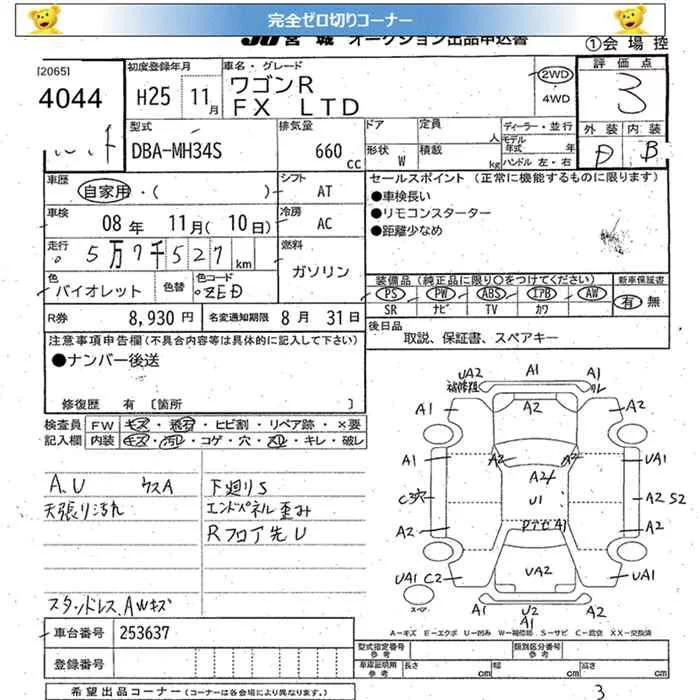 完全ゼロ切りコーナー
JU宮城 オークション出品申込書 ①会場控
[2065]
4044
初度登録年月
H25 11月
車名・グレード
ワゴンR
FX LTD
2WD
4WD
評価点
3
外装 内装
D B
型式
DBA-MH34S
排気量
660 cc
ドア 定員 人
形状 W 積載 kg
ディーラー・並行
モデル年式 年
ハンドル 左・右
車歴
自家用・( )
シフト
AT
車検
08年 11月(10日)
冷房
AC
走行
5万7千527 km
燃料
ガソリン
色
バイオレット
色替
色コード
ZED
R券 8,930円
名変通知期限 8月 31日
セールスポイント (正常に機能するものに限ります)
●車検長い
●リモコンスターター
●距離少なめ
装備品(純正品に限り○をつけてください)
新車保証書
PS PW ABS エアB AW
SR ナビ TV カワ
有 無
後日品
取説、保証書、スペアキー
注意事項申告欄(不具合内容等は具体的に記入して下さい)
●ナンバー後送
修復歴 有 [箇所 ]
検査員記入欄
FW キズ・飛石・ヒビ割・リペア跡・×要
内装 キズ・汚れ・コゲ・穴・スレ・キレ・破レ
A.U ウスA
天張り汚れ
スタッドレス.AWキズ
下廻りS
エンドパネル歪み
Rフロア先U
UA2 A1 A1
A1 A2 A2
A1 A2 A2 UA1
A2
C穴 U1 A2 S2
A2 A1 A2
UA1 C2 UA2 UA1
スペア A1 U2 A2
A1
A-キズ E-エクボ U-凹み W-補修跡 S-サビ C-腐食 XX-交換済
車台番号 253637
登録番号
型式指定番号 参考
類別区分番号 参考
車庫証明用 参考
長さ cm 幅 cm 高さ cm
希望出品コーナー(コーナーは各会場により異なります。)
3